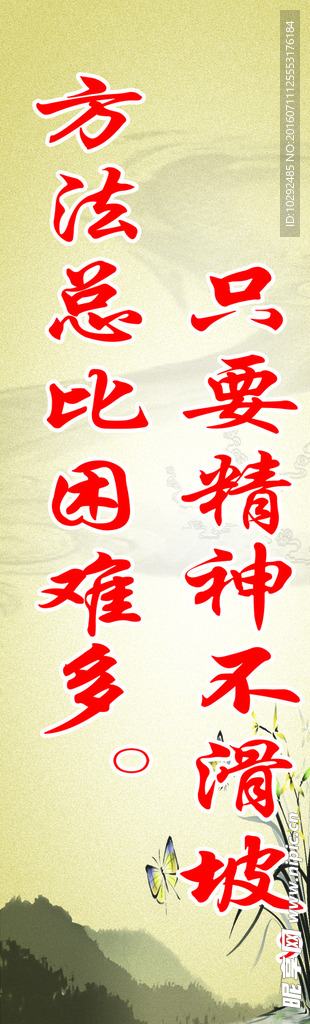 只要精神不滑坡
方法总比困难多。
ID:10292485 NO:20160711125553176184
昵享网 www.nipic.cn